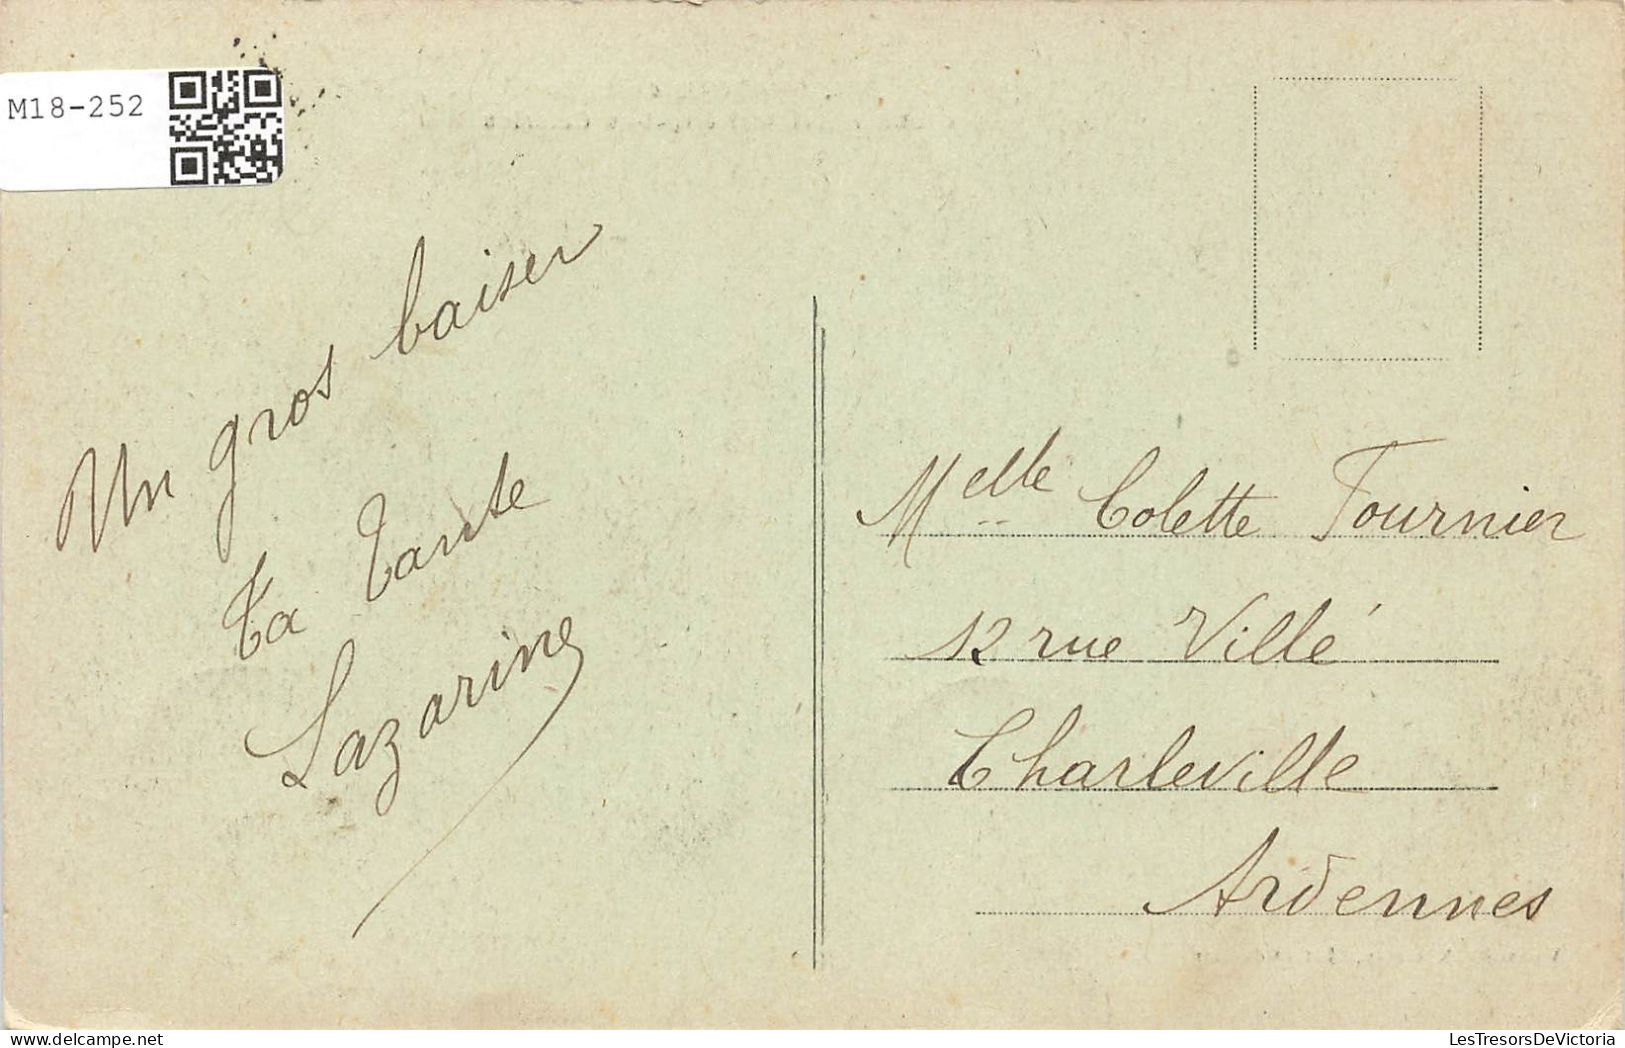 M18-252
Un gros baiser
Ta Tante
Lazarine
Melle Colette Fournier
12 rue Villé
Charleville
Ardennes
LesTresorsDeVictoria